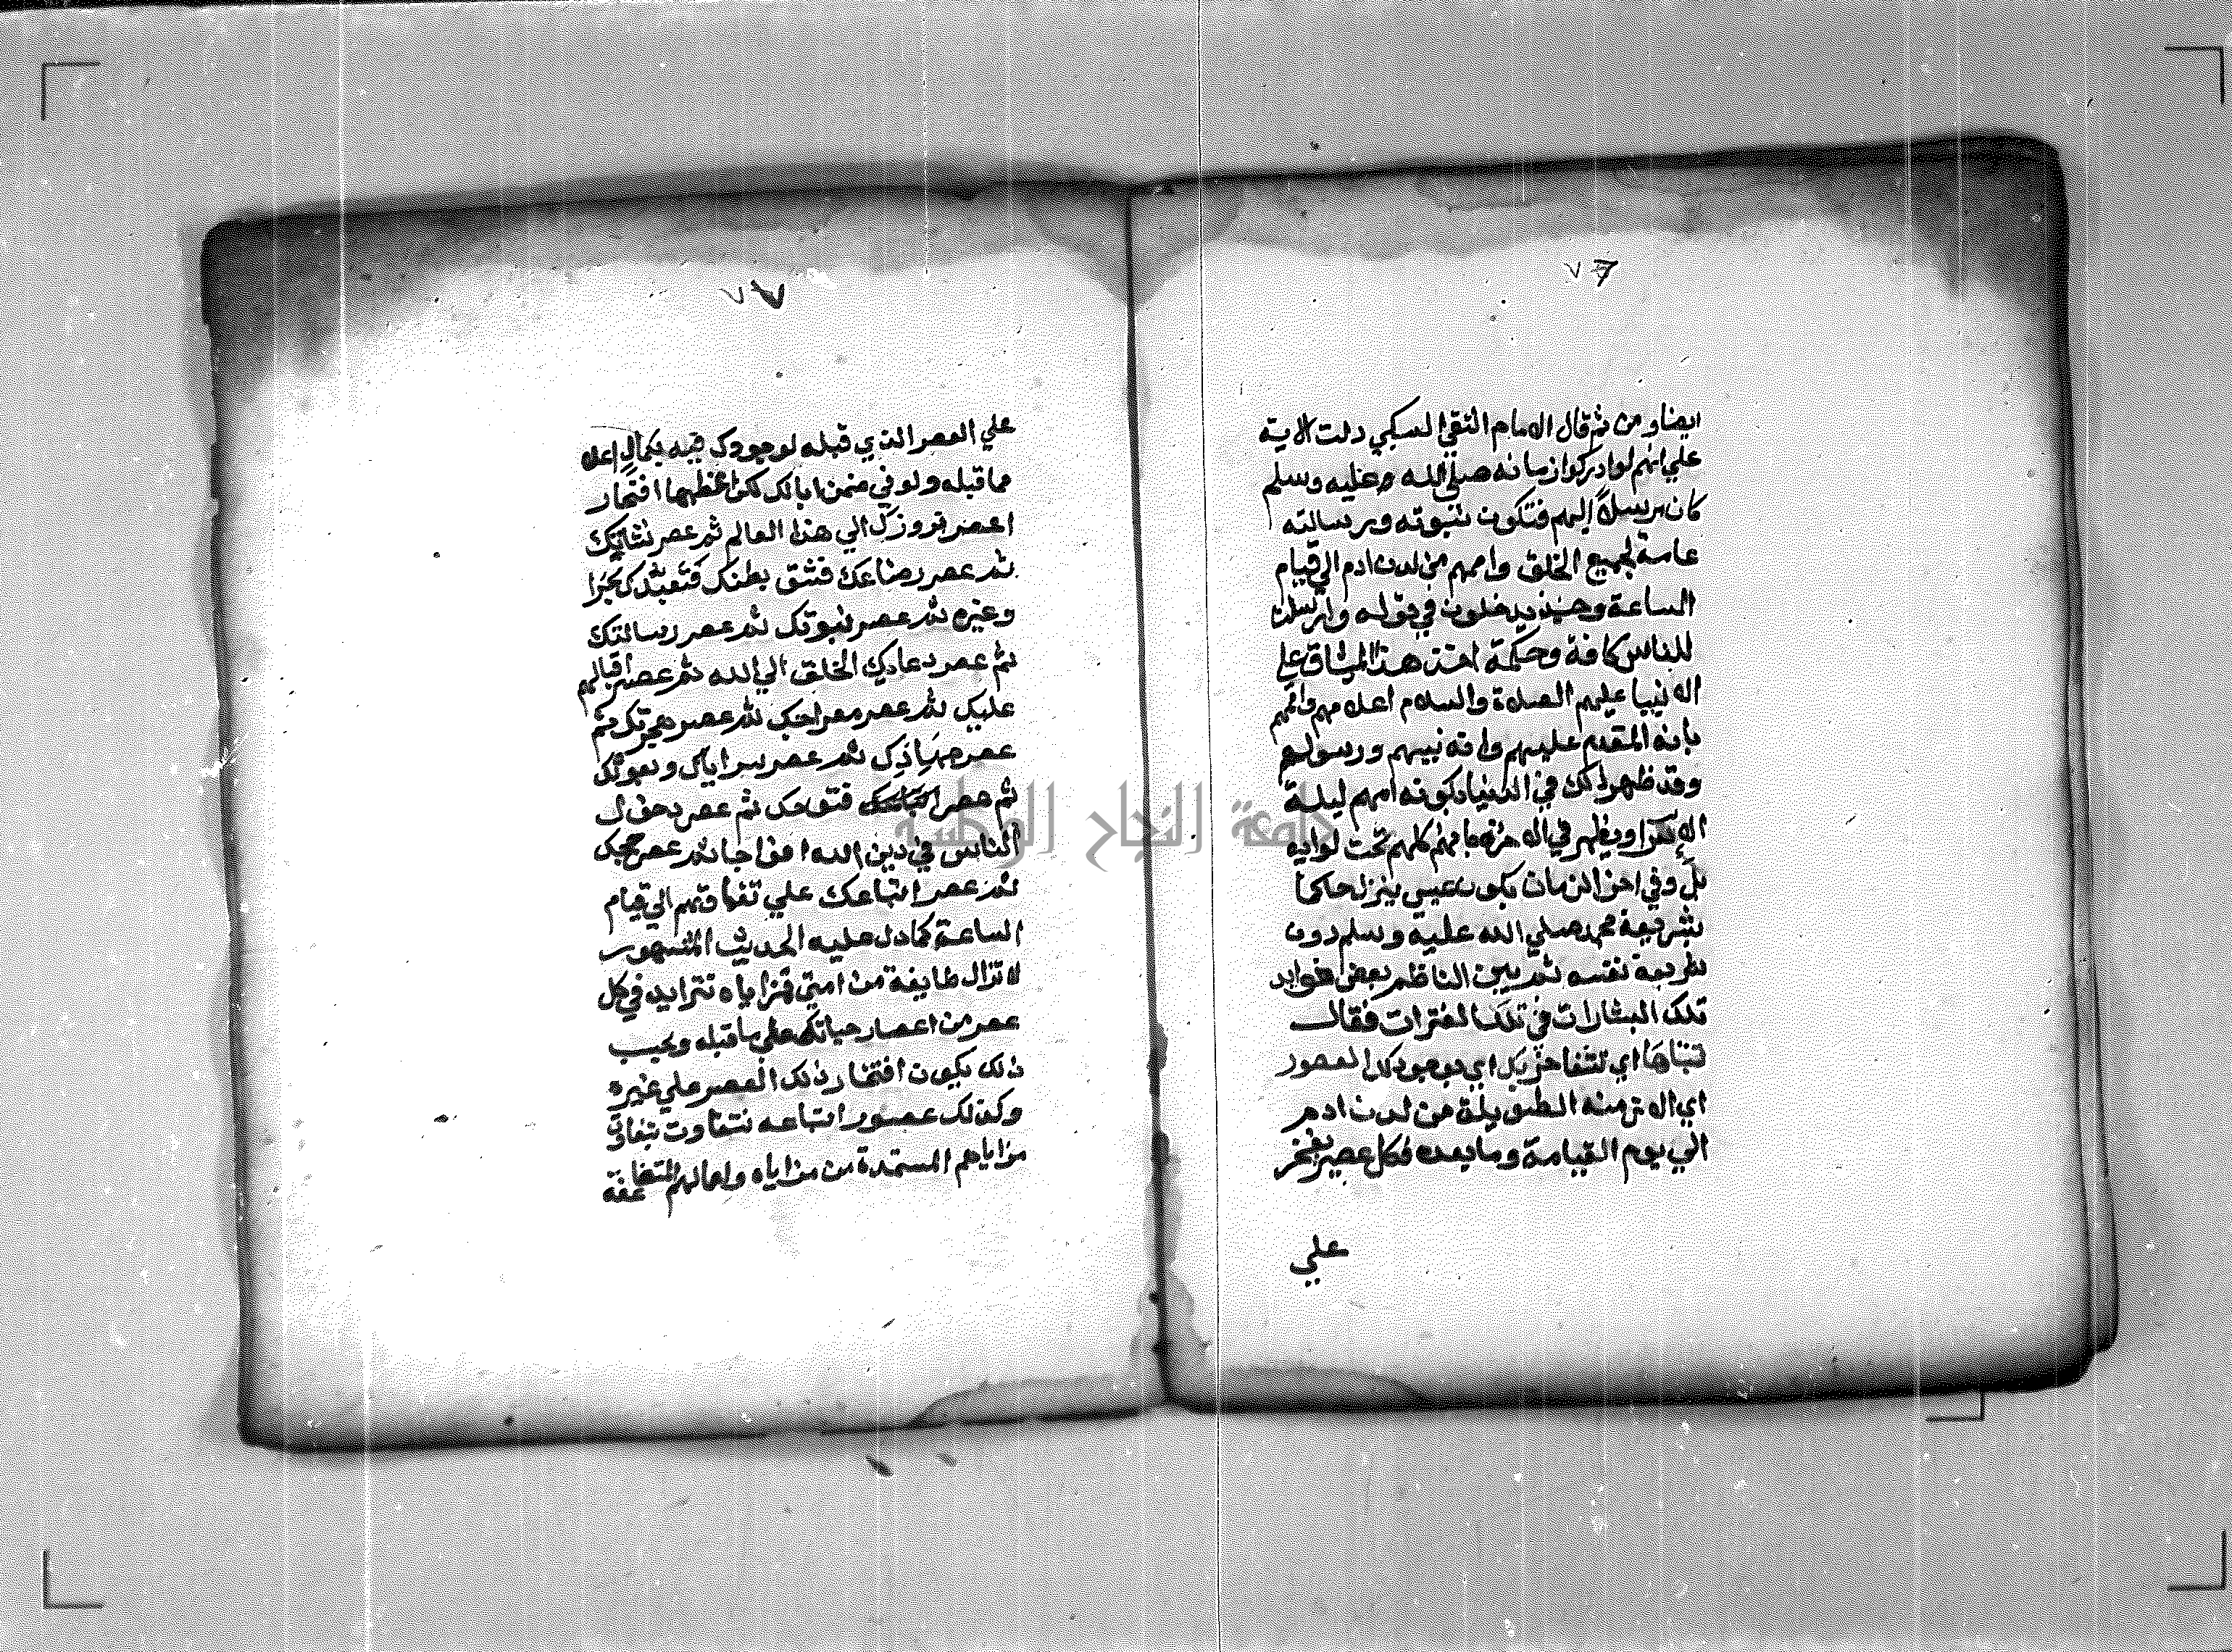 ٧٦
ايضا ومن ثم قال الامام التقي السبكي دلت الاية
علي انهم لو ادركوا زمانه صلي الله عليه وسلم
كان مرسلا اليهم فتكون نبوته ورسالته
عامة لجميع الخلق واممهم من لدن ادم الي قيام
الساعة وحينئذ يدخلون في قوله وارسلت
للناس كافة وحكمة اخذ هذا الميثاق علي
الانبيا عليهم الصلاة والسلام اعلامهم واممهم
بانه المقدم عليهم وانه نبيهم ورسولهم
وقد ظهر ذلك في الدنيا بكونه امهم ليلة
الاسرا ويظهر في الاخرة بانهم كلهم تحت لوايه
بل وفي اخر الزمان يكون عيسي ينزل حاكما
بشريعة محمد صلي الله عليه وسلم دون
شريعة نفسه ثم بين الناظم بعض فوايد
تلك البشارات في تلك الفترات فقال
تتباها اي تتفاخر بك اي بوجودك العصور
اي الازمنه الطويلة من لدن ادم
الي يوم القيامة وما بعده فكل عصر يفخر
علي
٧٧
علي العصر الذي قبله لوجودك فيه بكمال اعلا
مما قبله ولو في ضمن ابايك لكن اعظمها افتخار
اعصر بروزك الي هذا العالم ثم عصر نشاتك
ثم عصر رضاعك فشق بطنك فتعبدك بحرا
وغيره ثم عصر نبوتك ثم عصر رسالتك
ثم عصر دعايك الخلق الي الله ثم عصر اقبالهم
عليك ثم عصر معراجك ثم عصر هجرتك ثم
عصر جهادك ثم عصر سراياك وبعوثك
ثم عصر فتوحك ثم عصر دخول
الناس في دين الله افواجا ثم عصر حجك
ثم عصر اتباعك علي تفاوتهم الي قيام
الساعة كما دل عليه الحديث المشهور
لا تزال طايفة من امتي فمزاياه تتزايد في كل
عصر من اعصار حياتك علي ما قبله وبحسب
ذلك يكون افتخار ذلك العصر علي غيره
وكذلك عصور اتباعه تتفاوت بتفاوت
مزاياهم المستمدة من مزاياه واعمالهم المتضاعفة
جامعة النجاح الوطنية